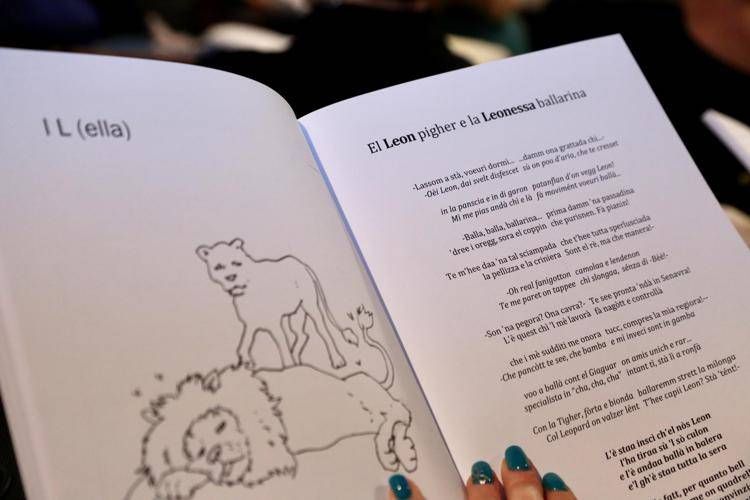 I L (ella)
El Leon pigher e la Leonessa ballarina
-Lassom a stà, voeuri dormì... ...damm ona grattada chì...-
-Oèi Leon, dai svelt disfescet sù on poo d'ario, che te cresset
in la panscia e in di garon patanflan d'on vegg Leon!
Mi me pias andà chì e là fà movimént voeuri ballà...
-Balla, balla, ballarina... prima damm 'na passadina
'dree i oregg, sora el coppin che purisnen. Fà pianin!
Te m'hee daa 'na tal sciampada che t'hee tutta sperlusciada
la pellizza e la criniera Sont el rè, ma che manera!-
-Oh real fanigotton camolaa e lendenon
Te me paret on tappee chì slongaa, sénza dì -Bèè!-
-Son 'na pegura? Ona cavra?- Te see pronta 'ndà in Senavra!
L'è quest chì 'l mè lavorà fà nagòtt e controllà
che i mè sudditi me onora tucc, compres la mia regiora!--
-Che pancòtt te see, che bamba e mi inveci sont in gamba
voo a ballà cont el Giaguar on amis unich e rar...
specialista in "cha, cha, cha" intant ti, stà lì a ronfà
Con la Tigher, fùrta e bionda ballaremm strett la milonga
Col Leopard on valzer lént T'hee capii Leon? Stà 'tént!-
L'è staa inscì ch'el nòs Leon
l'ha tiraa sù 'l sò culon
e l'è andaa ballà in balera
e'l gh'è staa tutta la sera
fat, per quanto bell
on quadrell